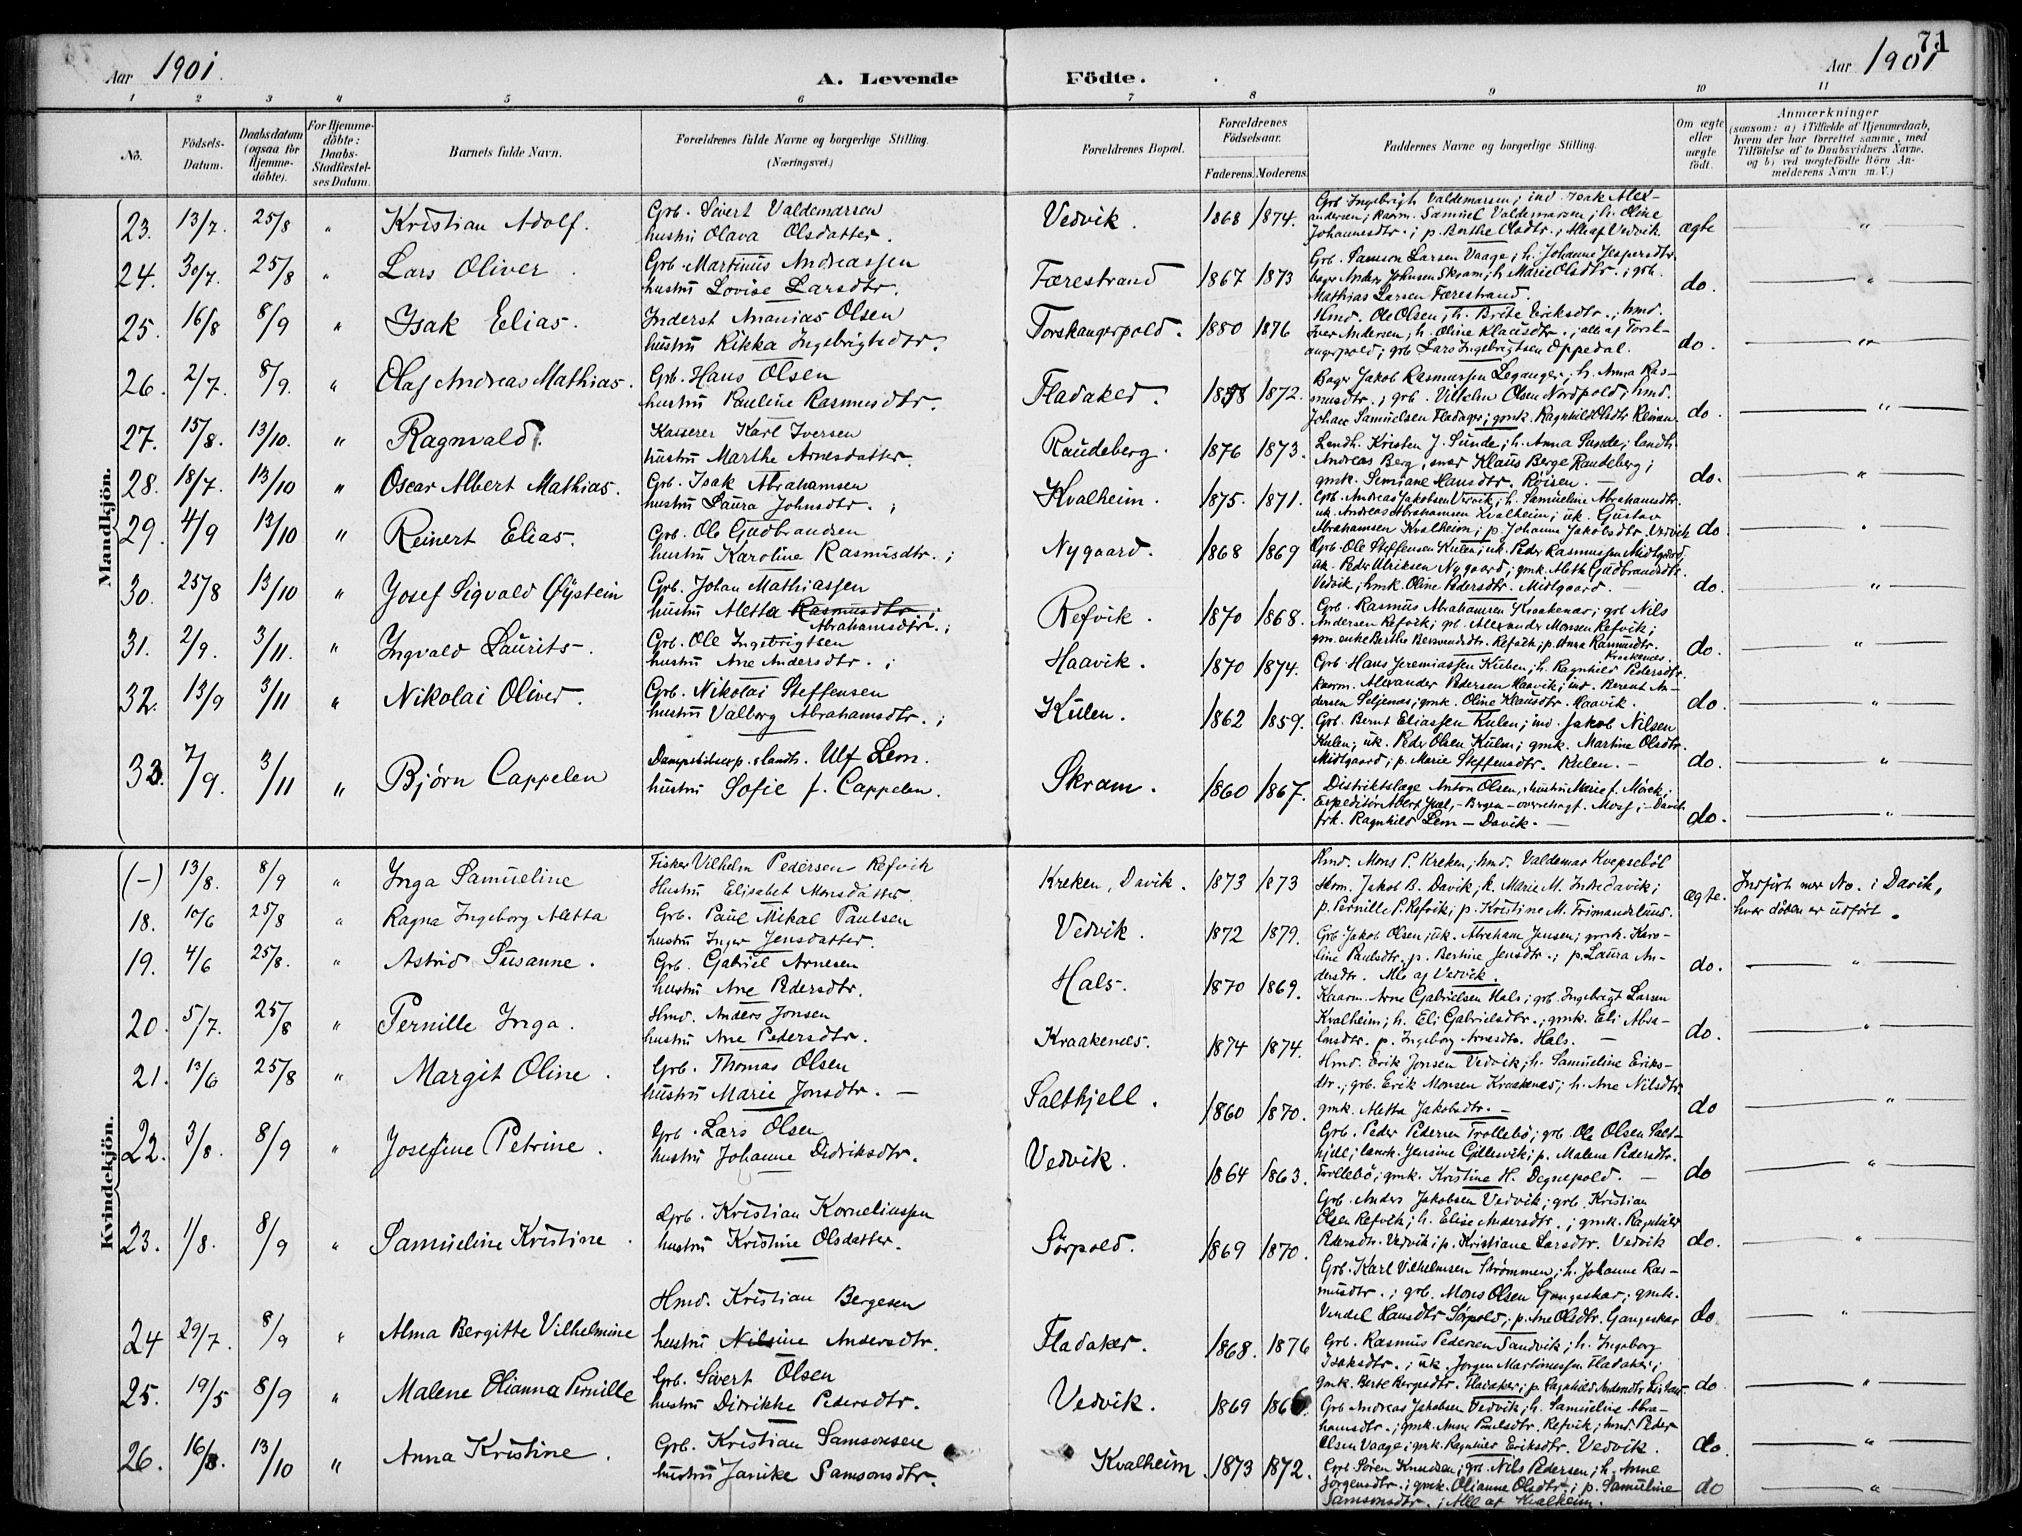 71
Aar 1901.
A. Levende
Födte.
Aar 1901
1 2 3 4 5 6 7 8 9 10 11
No.
Födsels-
Datum.
Daabsdatum
(ogsaa for
Hjemme-
döbte).
For Hjemme-
döbte:
Daabs-
Stadfæstel-
ses Datum.
Barnets fulde Navn.
Forældrenes fulde Navne og borgerlige Stilling.
(Næringsvei.)
Forældrenes Bopæl.
Forældrenes
Födselsaar.
Faderens. Moderens.
Faddernes Navne og borgerlige Stilling.
Om ægte
eller
uægte
födt.
Anmærkninger
(saasom: a) i Tilfælde af Hjemmedaab,
hvem der har forrettet samme, med
Tilföielse af to Daabsvidners Navne,
og b) ved uægtefödte Börn An-
melderens Navn m.V.)
Mandkjön.
23. 13/7. 25/8 " Kristian Adolf. Grb. Sivert Valdemarsen
hustru Olava Olsdatter.
Vedvik. 1868 1874.
Grb Ingebrigt Valdemarsen; ind. Isak Alex-
andersen; kaarm. Samuel Valdemarsen; h. Oline
Johannesdtr.; p. Berthe Olsdtr.; Alle af Vedvik.
ægte "
24. 30/7. 25/8 " Lars Oliver. Grb. Martinus Andreassen
hustru Lovise Larsdtr.
Færestrand 1867 1873
Grb. Samson Larsen Vaage; h. Johanne Jespersdtr.
bager Anders Johnsen Skram; h. Marie Olsdtr.; grb.
Mathias Larsen Færestrand.
do. "
25. 16/8 8/9 " Isak Elias. Inderst Ananias Olsen
hustru Rikka Ingebrigtsdtr.
Torskangerpold. 1880 1876
Hmd. Ole Olsen; h. Brite Eriksdtr.; hmd.
Iver Andersen; h. Oline Klausdtr.; alle af Torsk-
angerpold; grb Lars Ingebrigtsen Oppedal.
do. "
26. 2/7. 8/9. " Olaf Andreas Mathias. Grb. Hans Olsen
hustru Pauline Rasmusdtr.
Fladaker. 1872.
Bager Jakob Rasmussen Leganger; h. Anna Ras-
musdtr.; grb. Vilhelm Olsen Nordpold; hmd.
Johan Samuelsen Fladager; gmk. Ragnhild Olsdtr Reiman
do "
27. 15/8. 13/10. " Ragnvald. Kasserer Karl Iversen
hustru Marthe Arnesdatter.
Raudeberg. 1876 1873.
Landh. Kristen J. Sunde; h. Anna Sunde; landh.
Andreas Berg; snar Klaus Berge Raudeberg;
gmk. Simiane Hansdtr. Röisen.
do. "
28. 18/7. 13/10 " Oscar Albert Mathias. Grb. Isak Abrahamsen
hustru Laura Johnsdtr.;
Kvalheim. 1875. 1871.
Grb. Andreas Jakobsen Vedvik; h. Samueline Abrahamsdtr.
uk. Andreas Abrahamsen Kvalheim; uk. Gustav
Abrahamsen Kvalheim; p. Johanne Jakobsdtr. Vedvik
do. "
29. 4/9 13/10 " Reinert Elias. Grb. Ole Gudbrandsen
hustru Karoline Rasmusdtr.;
Nygaard. 1868 1869
Grb. Ole Steffensen Kulen; uk. Peder Rasmussen Midtgaard;
uk. Peder Ulriksen Nygaard; gmk. Aleth Gudbrandsdtr.
Vedvik; hmk. Oline Pedersdtr. Midtgaard.
do. "
30. 25/8 13/10 " Josef Sigvald Øystein Grb. Johan Mathiassen
hustru Aletta Rasmusdtr;
Abrahamsdtr.;
Refvik. 1870 1868.
Grb. Rasmus Abrahamsen Kraakenæs; grb Nils
Andersen Refvik; grb. Alexander Monsen Refvik;
gm. enke Berthe Bermundsdtr. Refvik; p. Anna Rasmusdtr.
Kraakenes.
do. "
31. 2/9. 3/11. " Ingvald Laurits. Grb. Ole Ingebrigtsen
hustru Ane Andersdtr.;
Haavik. 1870 1874.
Grb. Hans Jeremiassen Kulen; h. Ragnhild Pedersdtr.
kaarm. Alexander Pedersen Haavik; ind. Berent An-
dersen Seljenæs; gmk. Oline Klausdtr. Haavik.
do. "
32. 13/9 3/11 " Nikolai Oliver. Grb. Nikolai Steffensen
hustru Valborg Abrahamsdtr.;
Kulen. 1862 1859.
Grb. Bernt Eliassen Kulen; ind. Jakob Nilsen
Kulen; uk. Peder Olsen Kulen; gmk. Martine Olsdtr.
Midtgaard; p. Marie Steffensdtr. Kulen.
do. "
33. 7/9. 3/11 " Bjørn Cappelen Dampskibsexp. & landh. Ulf Lem.
hustru Sofie f. Cappelen.
Skram. 1860 1867.
Distriktslæge Anton Olsen, hustru Marie f. Mörch;
Expeditör Juel, - Bergen -
frk. Ragnhild Lem - Davik.
do. "
Kvindekjön.
(-) 13/8. 8/9 " Inga Samueline Fisker Vilhelm Pedersen Refvik
Hustru Elisabet Monsdatter.
Kreken, Davik. 1873 1873
Hmd. Mons P. Kreken; hmd. Valdemar Kvepsebøl
Skom. Jakob B. Davik; k. Marie M. Indredavik;
p. Pernille P. Refvik; p. Kristine M. Frimandslund.
ægte. Indført mer No. i Davik,
hvor dåben er udført.
18. 10/6 25/8 " Ragna Ingeborg Aletta Grb. Paul Mikal Paulsen
hustru Inger Jensdatter.
Vedvik. 1872 1879.
Grb Jakob Olsen; uk. Abraham Jensen; gmk. Karo-
line Paulsdtr. p. Bertine Jensdtr.; p. Laura An-
dersdtr. Alle af Vedvik.
do. "
19. 4/6 25/8. " Astrid Susanne. Grb. Gabriel Arnesen
hustru Ane Pedersdtr.
Hals. 1870 1869.
Kaarm. Arne Gabrielsen Hals; grb. Ingebrigt Larsen
Kvalheim; h. Eli Gabrielsdtr.; gmk. Eli Abra-
hmsdtr. p. Ingeborg Arnesdtr. Hals.
do. "
20. 5/7. 25/8 " Pernille Inga. Hmd. Anders Jonsen
hustru Ane Pedersdtr.
Kraakenes. 1874 1874.
Hmd. Erik Jonsen Vedvik; h. Samueline Eriks-
dtr.; grb. Erik Monsen Kraakenæs; h. Ane Nilsdtr.
gmk. Aletta Jakobsdtr.
do "
21. 13/6 25/8 " Margit Oline. Grb. Thomas Olsen
hustru Marie Jonsdtr.
Saltkjell. 1860 1870.
Grb. Peder Pedersen Trollebö; grb. Ole Olsen Salt-
kjell; landh. Jensine Gillesvik; p. Malene Pedersdtr.
Trollebö; gmk. Kristine H. Degnepold.
do "
22. 3/8. 8/9 " Josefine Petrine. Grb. Lars Olsen
hustru Johanne Didriksdtr.
Vedvik. 1864 1863.
Grb. Anders Jakobsen Vedvik; grb. Kristian
Olsen Refvik; h. Elise Andersdtr.; gmk. Ragnhild
Pedersdtr. Vedvik; p. Kristiane Larsdtr. Vedvik
do. "
23. 1/8. 8/9 " Samueline Kristine. Grb. Kristian Korneliussen
hustru Kristine Olsdatter.
Sørpold. 1869 1870.
Grb. Karl Vilhelmsen Strömmen; h. Johanne Ras-
musdtr.; grb. Mons Olsen Gangeskar; gmk.
Vendel Hansdtr Sörpold; p. Ane Olsdtr. Gangeskar
do "
24 29/7. 8/9 " Alma Bergitte Vilhelmine Hmd. Kristian Bergesen
hustru Nilsine Andersdtr.
Fladaker. 1868. 1876
Grb. Rasmus Pedersen Sandvik; h. Ingeborg
Isaksdtr.; uk. Jørgen Martinussen Fladaker;
gmk. Berte Bergesdtr. Fladaker; p. Ragnhild Andersdtr
do. "
25. 19/5 8/9 " Malene Olianna Pernille Grb. Sivert Olsen
hustru Didrikke Pedersdtr.
Vedvik. 1869 1866.
Grb Andreas Jakobsen Vedvik; h. Samueline Abra-
hamsdtr.; gmk. Anne Paulsdtr. Refvik; hmd. Peder
Olsen Vaage; gmk. Ragnhild Eriksdtr. Vedvik.
do. "
26. 16/8. 13/10 " Anna Kristine. Grb. Kristian Samsonsen
hustru Janike Samsonsdtr.
Kvalheim 1873 1872.
Grb Sören Knudsen; grb. Nils Pedersen; h. Anne
Jörgensdtr.; gmk. Olianne Olsdtr.; p. Samueline
Samsonsdtr.; Alle af Kvalheim.
do "